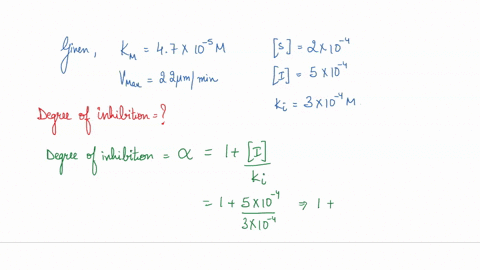 Given, K_M = 4.7 × 10⁻⁵ M
V_Max = 22 μm/min
[S] = 2×10⁻⁴
[I] = 5×10⁻⁴
Ki = 3×10⁻⁴ M.
Degree of inhibition = ?
Degree of inhibition = α = 1 + [I]/Ki
= 1 + 5×10⁻⁴/3×10⁻⁴ ⇒ 1 +